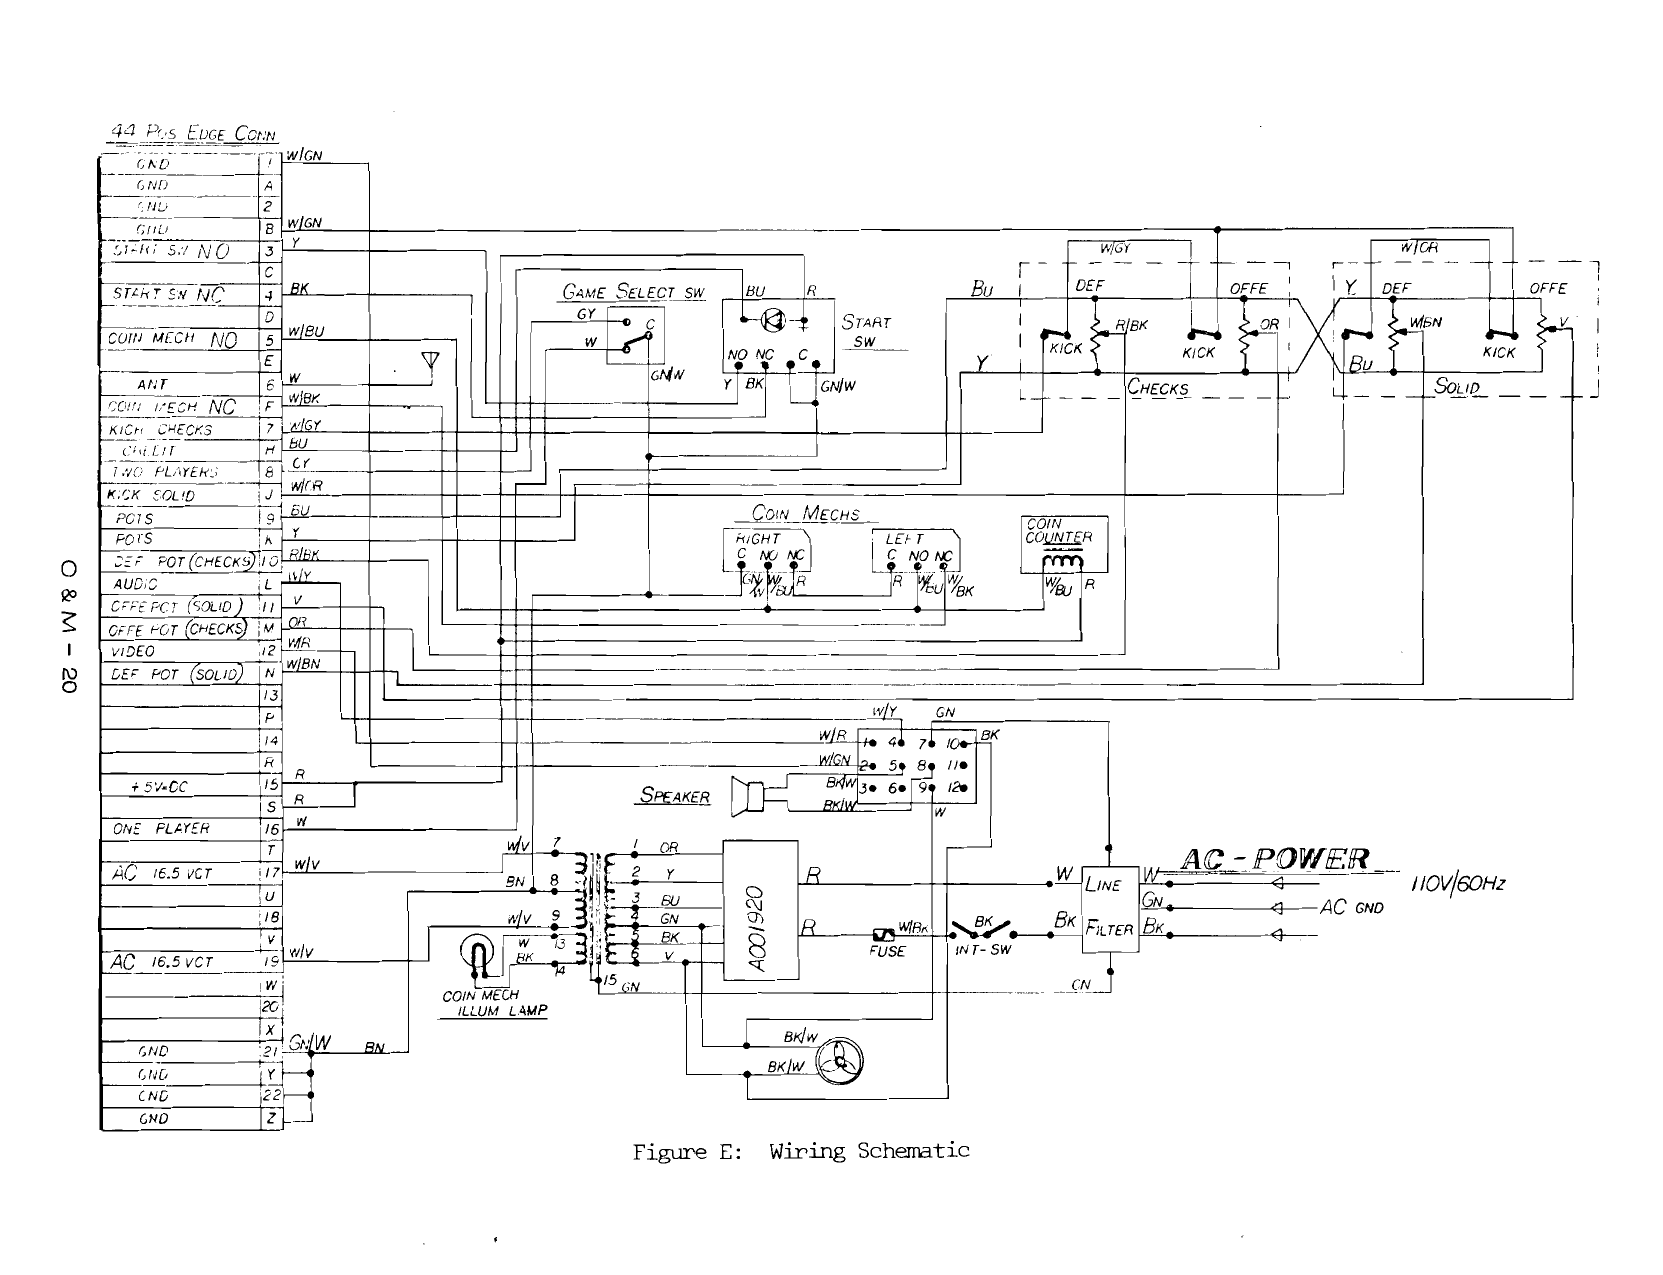 44 Pos EDGE CONN
GND 1 W/GN
GND A
GND 2
GND B W/GN
START SW NO 3 Y
C
START SW NC 4 BK
D
COIN MECH NO 5 W/BU
E
ANT 6 W
COIN MECH NC F W/BK
KICK CHECKS 7 W/GY
CREDIT H BU
TWO PLAYERS 8 GY
KICK SOLID J W/OR
POTS 9 BU
POTS K Y
DEF POT (CHECKS) 10 R/BK
AUDIO L W/Y
OFFE POT (SOLID) 11 V
OFFE POT (CHECKS) M OR
VIDEO 12 W/R
DEF POT (SOLID) N W/BN
13
P
14
R
+5V-DC 15 R
S R
ONE PLAYER 16 W
T
AC 16.5 VCT 17 W/V
U
18
V
AC 16.5 VCT 19 W/V
W
20
X
GND 21 GN/W BN
GND Y
GND 22
GND Z
O & M - 20
GAME SELECT SW
GY
C
W
GN/W
BU R
START
SW
NO NC C
Y BK GN/W
BU
Y
W/GY
DEF OFFE
R/BK OR
KICK KICK
CHECKS
W/OR
Y DEF OFFE
W/BN V
KICK
BU
SOLID
COIN MECHS
RIGHT
C NO NC
GN/W W/BU R
LEFT
C NO NC
R W/BU W/BK
COIN
COUNTER
W/BU R
W/Y GN
W/R 1 4 7 10 BK
W/GN 2 5 8 11
BK/W 3 6 9 12
BK/W W
SPEAKER
W/V 7
BN 8
W/V 9
W 13
BK 14
COIN MECH
ILLUM LAMP
1 OR
2 Y
3 BU
4 GN
5 BK
6 V
15 GN
A001920
R
R
FUSE
W/BK
BK
INT-SW
W
BK
LINE
FILTER
W
GN
BK
GN
AC-POWER
110V/60Hz
AC GND
BK/W
BK/W
Figure E: Wiring Schematic